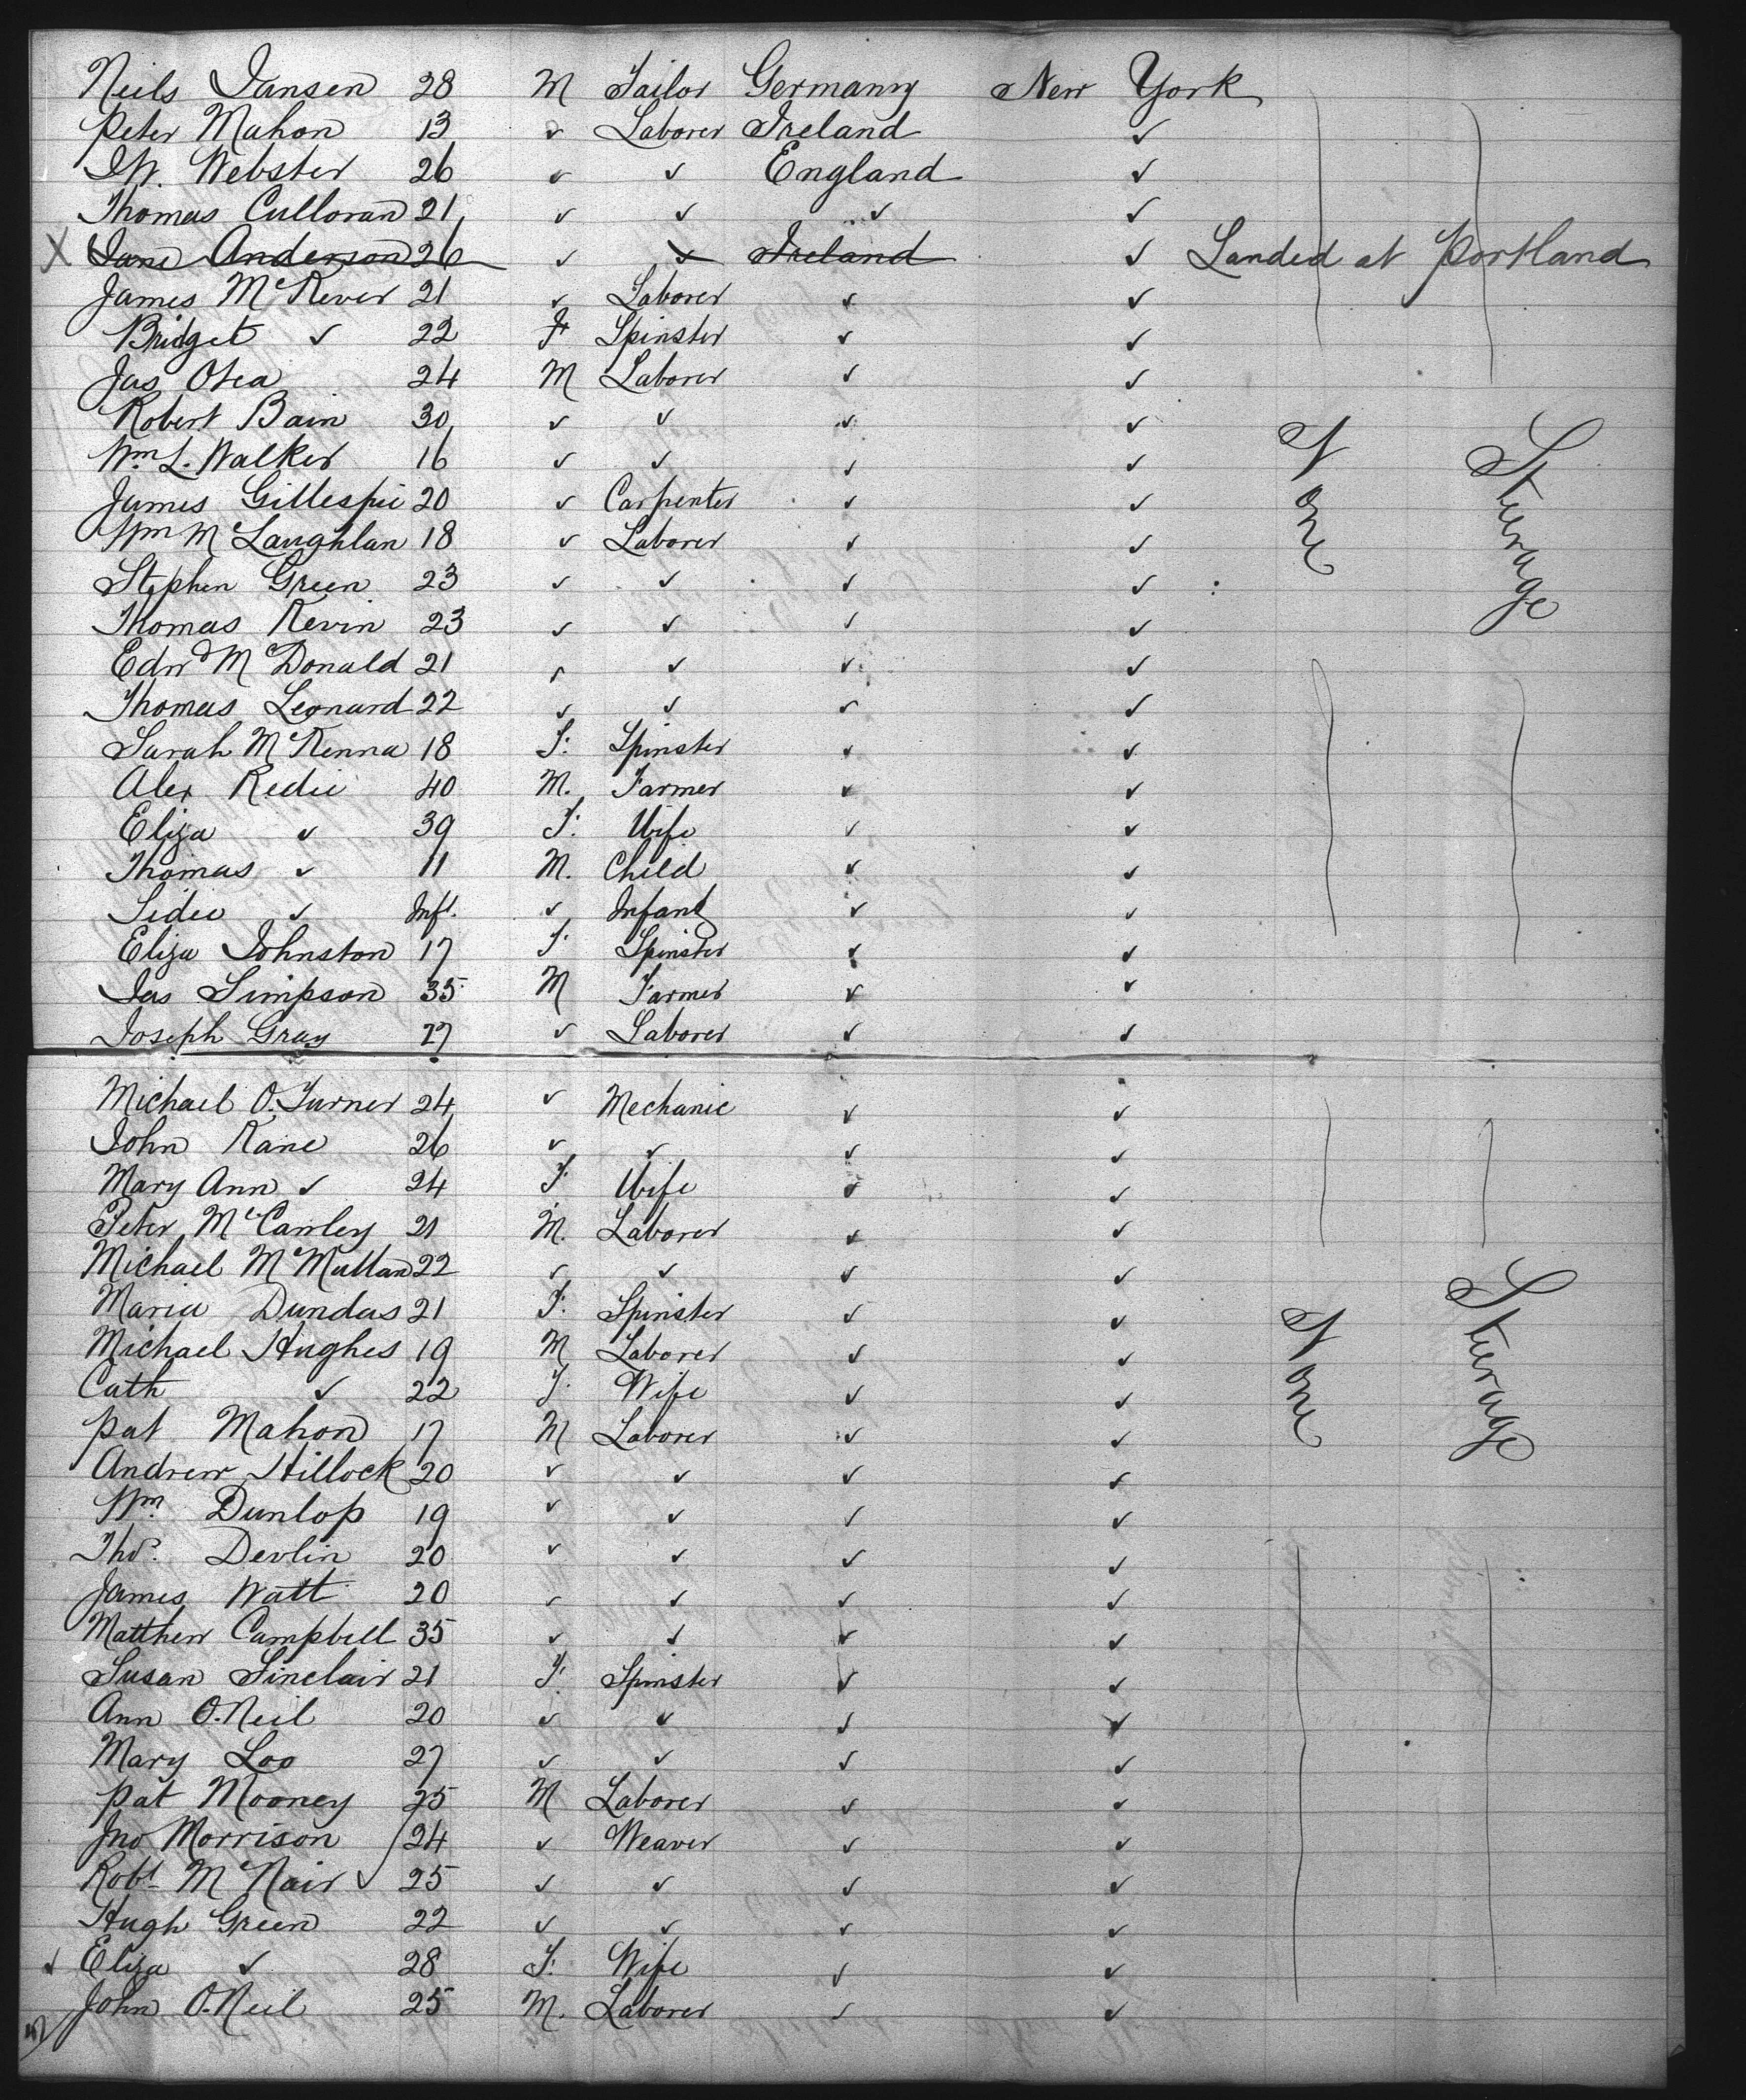 Neils Jansen 28 M Tailor Germany New York
Peter Mahon 13 ✓ Laborer Ireland ✓
J.W. Webster 26 ✓ ✓ England ✓
Thomas Culloran 21 ✓ ✓ ✓ ✓
X Jane Anderson 26 ✓ ✓ Ireland ✓ Landed at Portland
James McKever 21 ✓ Laborer ✓ ✓
Bridget ✓ 22 F Spinster ✓ ✓
Jas Ohea 24 M Laborer ✓ ✓
Robert Bain 30 ✓ ✓ ✓ ✓
Wm L. Walker 16 ✓ ✓ ✓ ✓
James Gillespie 20 ✓ Carpenter ✓ ✓
Wm McLaughlan 18 ✓ Laborer ✓ ✓
Stephen Green 23 ✓ ✓ ✓ ✓
Thomas Kevin 23 ✓ ✓ ✓ ✓
Edwd McDonald 21 ✓ ✓ ✓ ✓
Thomas Leonard 22 ✓ ✓ ✓ ✓
Sarah McKenna 18 F. Spinster ✓ ✓
Alex Redie 40 M. Farmer ✓ ✓
Eliza ✓ 39 F. Wife ✓ ✓
Thomas ✓ 11 M. Child ✓ ✓
Sidie ✓ Inft. ✓ Infant ✓ ✓
Eliza Johnston 17 F. Spinster ✓ ✓
Jas Simpson 35 M Farmer ✓ ✓
Joseph Gray 27 ✓ Laborer ✓ ✓
None
Steerage
Michael O.Turner 24 ✓ Mechanic ✓ ✓
John Kane 26 ✓ ✓ ✓ ✓
Mary Ann ✓ 24 F. Wife ✓ ✓
Peter McCawley 21 M. Laborer ✓ ✓
Michael McMullan 22 ✓ ✓ ✓ ✓
Maria Dundas 21 F. Spinster ✓ ✓
Michael Hughes 19 M Laborer ✓ ✓
Cath ✓ 22 F. Wife ✓ ✓
Pat Mahon 17 M Laborer ✓ ✓
Andrew Hillock 20 ✓ ✓ ✓ ✓
Wm. Dunlop 19 ✓ ✓ ✓ ✓
Thos. Devlin 20 ✓ ✓ ✓ ✓
James Watt 20 ✓ ✓ ✓ ✓
Matthew Campbell 35 ✓ ✓ ✓ ✓
Susan Sinclair 21 F. Spinster ✓ ✓
Ann O.Neil 20 ✓ ✓ ✓ ✓
Mary Loo 27 ✓ ✓ ✓ ✓
Pat Mooney 25 M Laborer ✓ ✓
Jno Morrison 24 ✓ Weaver ✓ ✓
Robt McNair ✓ 25 ✓ ✓ ✓ ✓
Hugh Green 22 ✓ ✓ ✓ ✓
✓ Eliza ✓ 28 F. Wife ✓ ✓
John O.Neil 25 M. Laborer ✓ ✓
None
Steerage